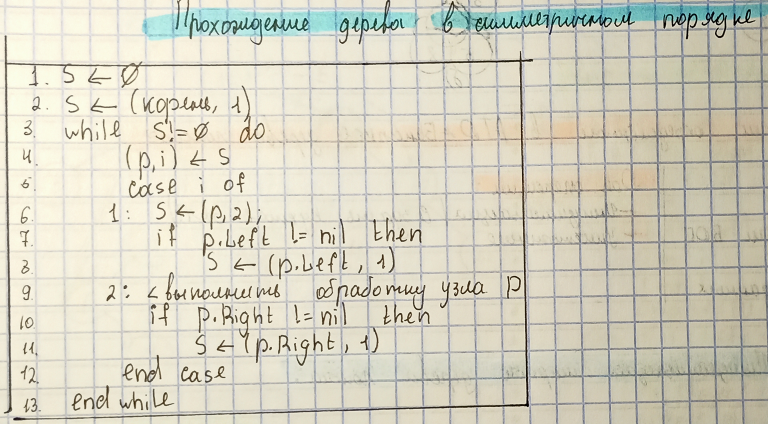 Прохождение дерева в симметричном порядке
1. S ← Ø
2. S ← (корень, 1)
3. while S != Ø do
4. (p,i) ← S
5. case i of
6. 1: S ← (p, 2);
7. if p.Left != nil then
8. S ← (p.Left, 1)
9. 2: < выполнить обработку узла p
10 if p.Right != nil then
11. S ← (p.Right, 1)
12. end case
13. end while